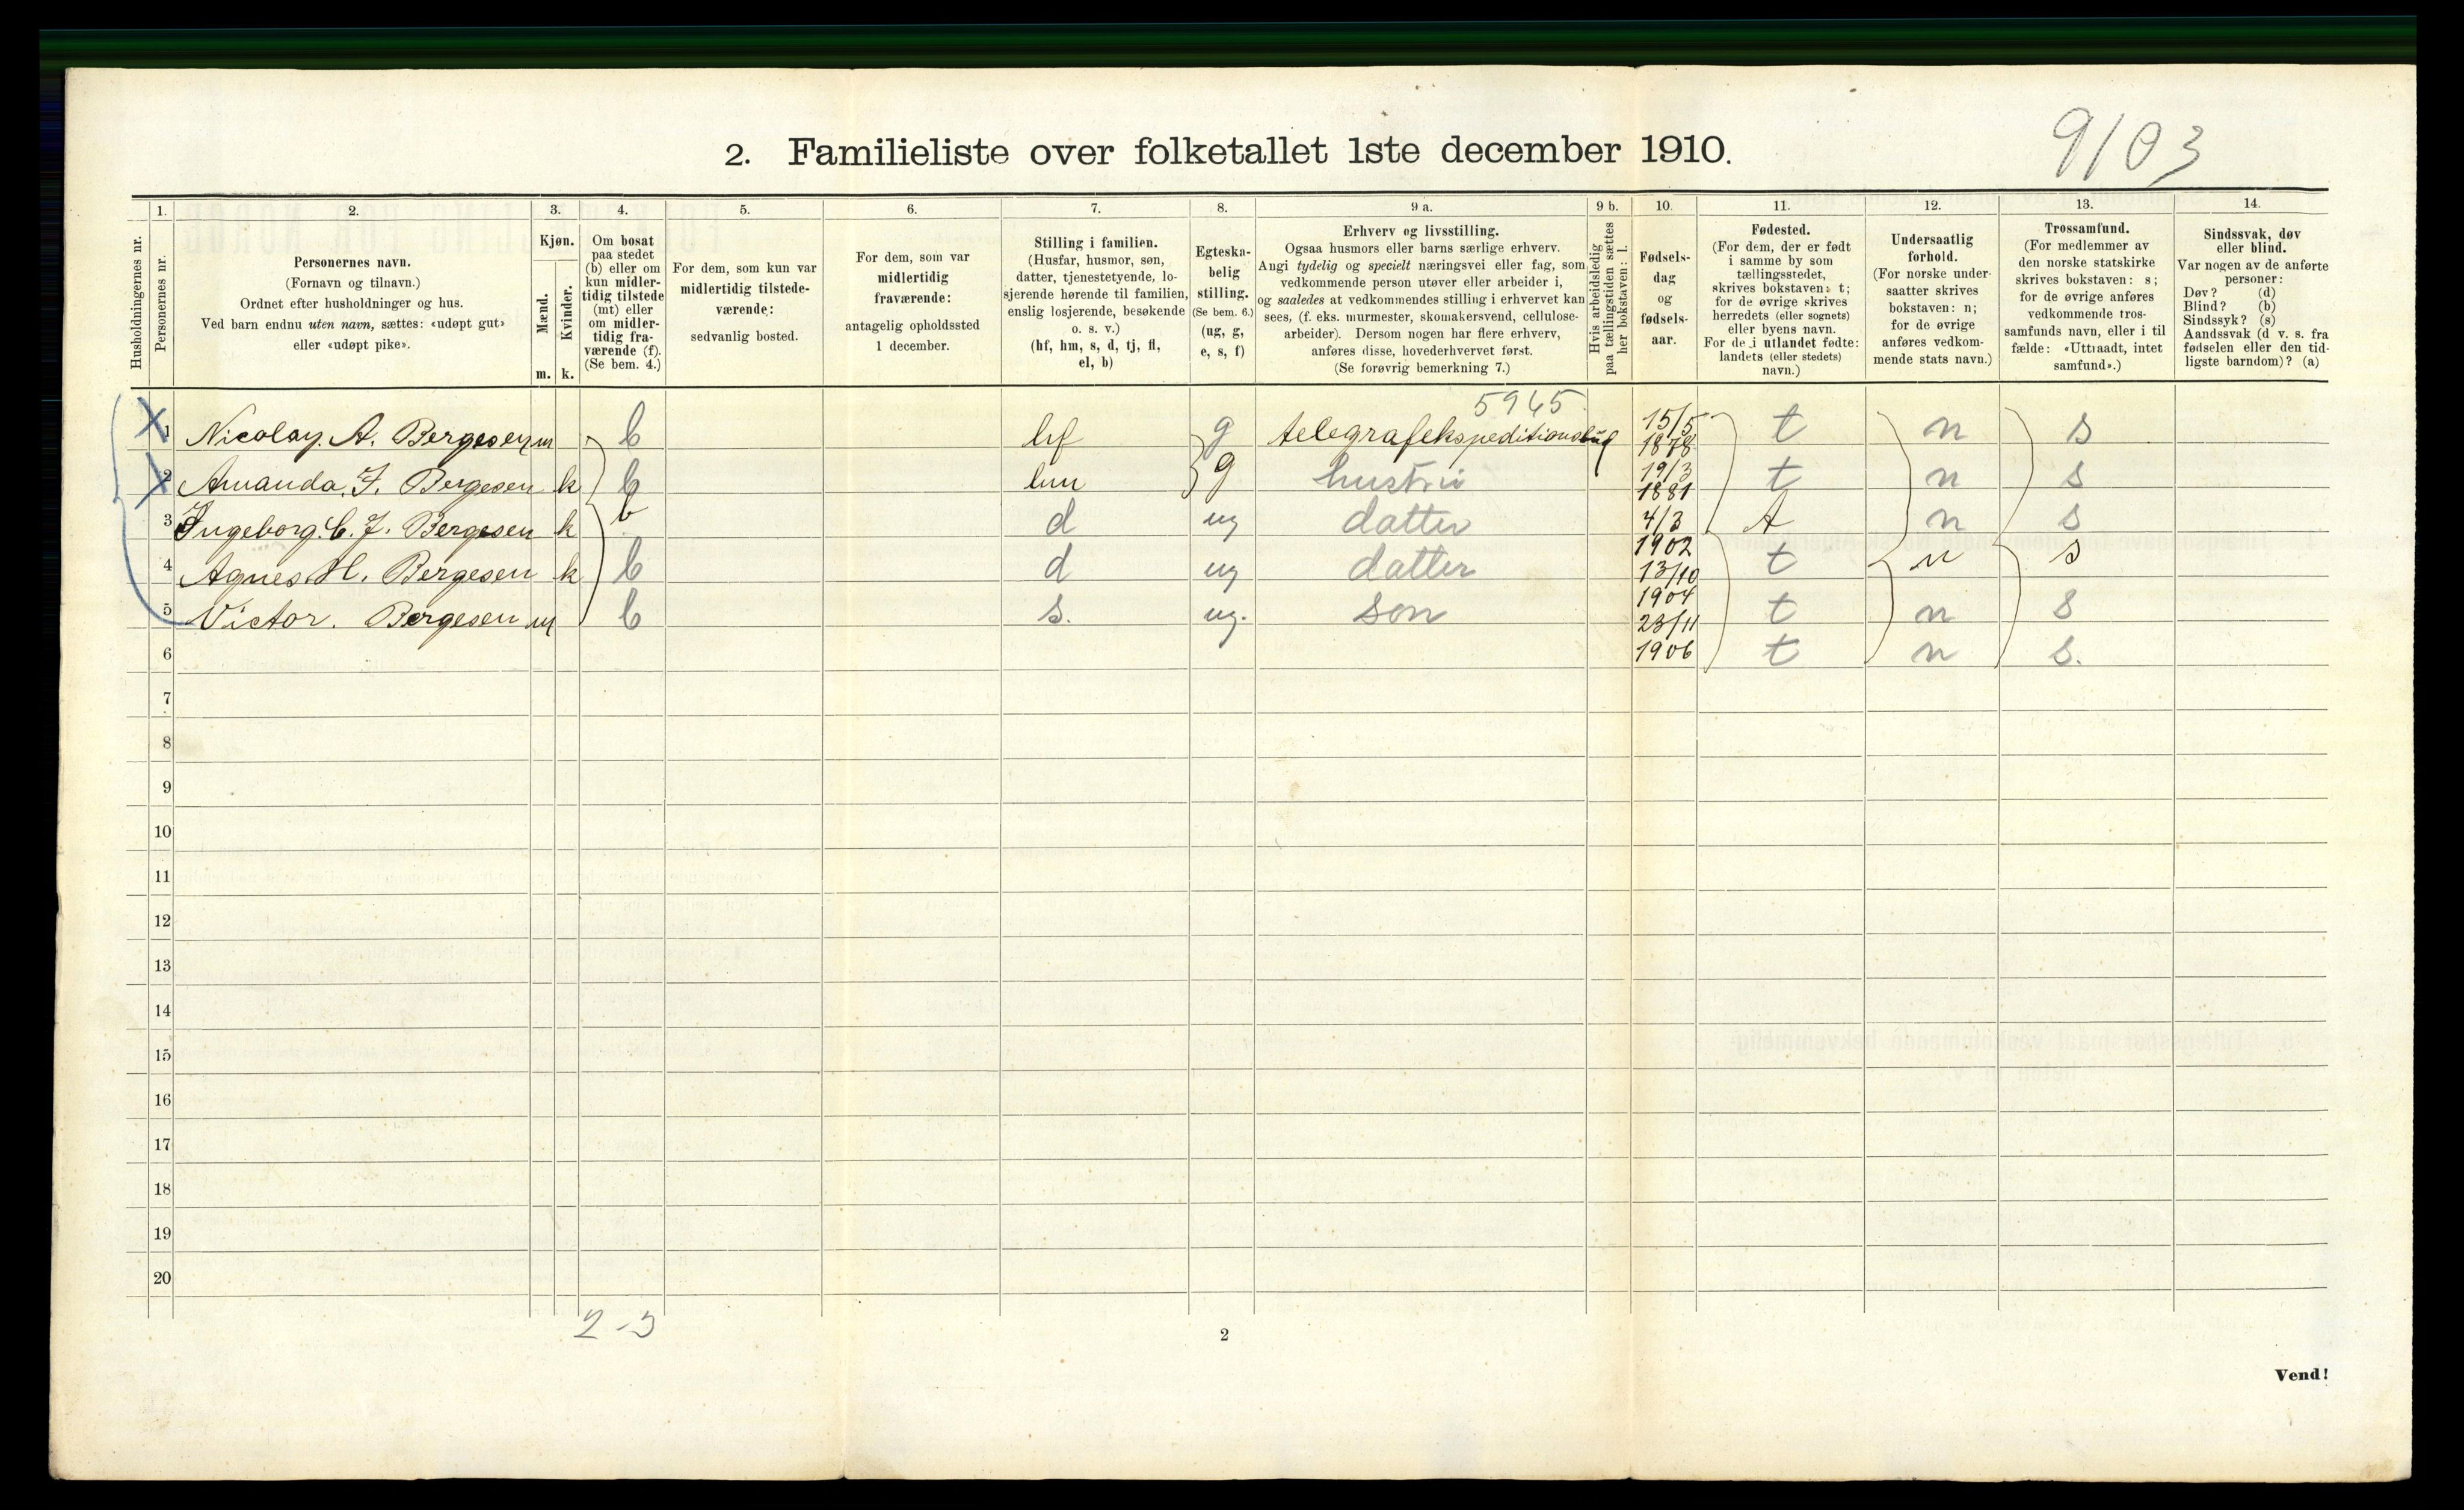 9103
2. Familieliste over folketallet 1ste december 1910.
1. 2. 3. 4. 5. 6. 7. 8. 9 a. 9 b. 10. 11. 12. 13. 14.
Husholdningernes nr.
Personernes nr.
Personernes navn.
(Fornavn og tilnavn.)
Ordnet efter husholdninger og hus.
Ved barn endnu uten navn, sættes: «udøpt gut»
eller «udøpt pike».
Kjøn.
Mænd.
Kvinder.
m. k.
Om bosat
paa stedet
(b) eller om
kun midler-
tidig tilstede
(mt) eller
om midler-
tidig fra-
værende (f).
(Se bem. 4.)
For dem, som kun var
midlertidig tilstede-
værende:
sedvanlig bosted.
For dem, som var
midlertidig
fraværende:
antagelig opholdssted
1 december.
Stilling i familien.
(Husfar, husmor, søn,
datter, tjenestetyende, lo-
sjerende hørende til familien,
enslig losjerende, besøkende
o. s. v.)
(hf, hm, s, d, tj, fl,
el, b)
Egteska-
belig
stilling.
(Se bem. 6.)
(ug, g,
e, s, f)
Erhverv og livsstilling.
Ogsaa husmors eller barns særlige erhverv.
Angi tydelig og specielt næringsvei eller fag, som
vedkommende person utøver eller arbeider i,
og saaledes at vedkommendes stilling i erhvervet kan
sees, (f. eks. murmester, skomakersvend, cellulose-
arbeider). Dersom nogen har flere erhverv,
anføres disse, hovederhvervet først.
(Se forøvrig bemerkning 7.)
Hvis arbeidsledig
paa tællingstiden sættes
her bokstaven: l.
Fødsels-
dag
og
fødsels-
aar.
Fødested.
(For dem, der er født
i samme by som
tællingsstedet,
skrives bokstaven: t;
for de øvrige skrives
herredets (eller sognets)
eller byens navn.
For de i utlandet fødte:
landets (eller stedets)
navn.)
Undersaatlig
forhold.
(For norske under-
saatter skrives
bokstaven: n;
for de øvrige
anføres vedkom-
mende stats navn.)
Trossamfund.
(For medlemmer av
den norske statskirke
skrives bokstaven: s;
for de øvrige anføres
vedkommende tros-
samfunds navn, eller i til
fælde: «Uttraadt, intet
samfund».)
Sindssvak, døv
eller blind.
Var nogen av de anførte
personer:
Døv? (d)
Blind? (b)
Sindssyk? (s)
Aandssvak (d v. s. fra
fødselen eller den tid-
ligste barndom)? (a)
5945
1 Nicolay. A. Bergesen m b hf g 15/5 1878 t n s
2 Amanda. J. Bergesen k b hm g hustru 19/3 1881 t n s
3 Ingeborg. C. J. Bergesen k b d ug datter 4/3 1902 n s
4 Agnes. H. Bergesen k b d ug datter 13/10 1904 t n s
5 Victor. Bergesen m b s. ug. son 23/11 t n s
6 1906 t n s.
7
8
9
10
11
12
13
14
15
16
17
18
19
20
2-3
2
Vend!